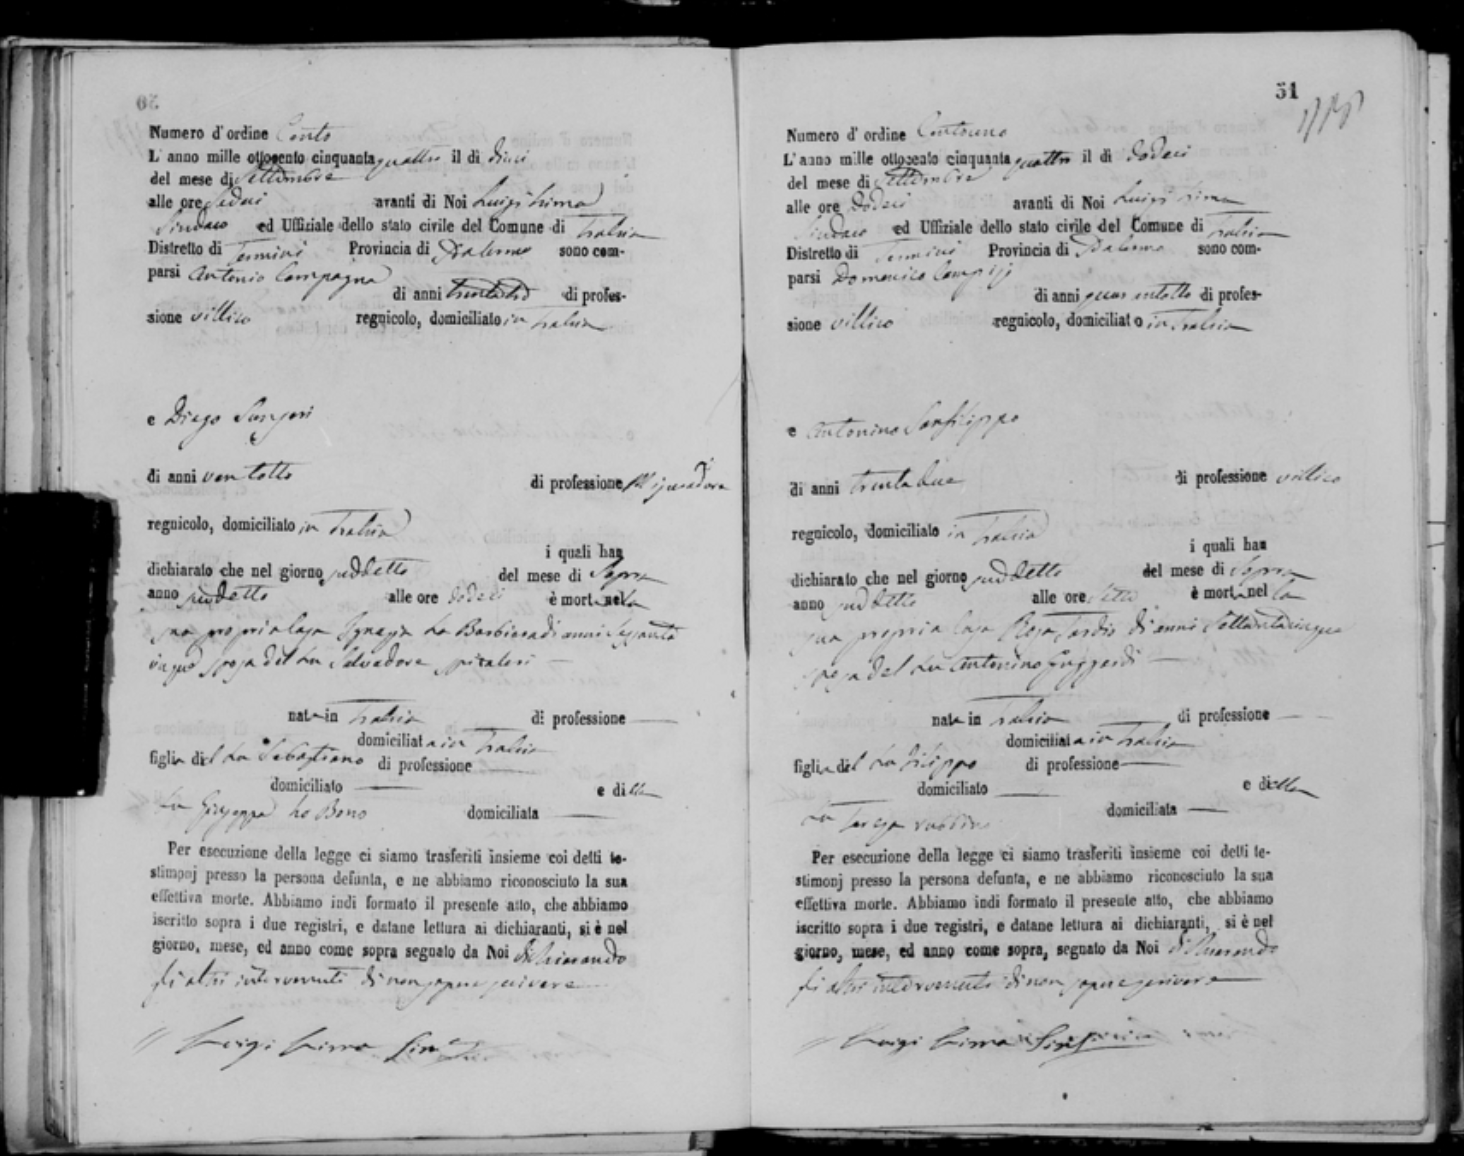 50
Numero d'ordine Cento
L'anno mille ottocento cinquantaquattro il di dieci
del mese di Settembre
alle ore sedici avanti di Noi Luigi Lima
Sindaco ed Uffiziale dello stato civile del Comune di Trabia
Distretto di Termini Provincia di Palermo sono com-
parsi Antonio Campagna
di anni trentatre di profes-
sione villico regnicolo, domiciliato in Trabia
e Diego
di anni ventotto di professione
regnicolo, domiciliato in Trabia
i quali han
dichiarato che nel giorno suddetto del mese di Sopra
anno suddetto alle ore dodeci è morta nella
sua propria casa Ignazia La Barbiera di anni sessanta
cinque sposa del fu Salvadore
nata in Trabia di professione
domiciliata in Trabia
figlia del fu Sebastiano di professione
domiciliato e della
fu Giuseppa Lo Bono domiciliata
Per esecuzione della legge ci siamo trasferiti insieme coi detti te-
stimonj presso la persona defunta, e ne abbiamo riconosciuto la sua
effettiva morte. Abbiamo indi formato il presente atto, che abbiamo
iscritto sopra i due registri, e datane lettura ai dichiaranti, si è nel
giorno, mese, ed anno come sopra segnato da Noi dichiarando
gli altri intervenuti di non sapere scrivere
Luigi Lima
51
Numero d'ordine Centouno
L'anno mille ottocento cinquantaquattro il di dodeci
del mese di Settembre
alle ore dodeci avanti di Noi Luigi Lima
Sindaco ed Uffiziale dello stato civile del Comune di Trabia
Distretto di Termini Provincia di Palermo sono com-
parsi Domenico Campisi
di anni quarantotto di profes-
sione villico regnicolo, domiciliato in Trabia
e Antonino Sanfilippo
di anni trentadue di professione villico
regnicolo, domiciliato in Trabia
i quali han
dichiarato che nel giorno suddetto del mese di Sopra
anno suddetto alle ore sette è morta nella
sua propria casa Rosa Tardio di anni settantacinque
sposa del fu Antonino
nata in Trabia di professione
domiciliata in Trabia
figlia del fu Filippo di professione
domiciliato e della
fu Teresa domiciliata
Per esecuzione della legge ci siamo trasferiti insieme coi detti te-
stimonj presso la persona defunta, e ne abbiamo riconosciuto la sua
effettiva morte. Abbiamo indi formato il presente atto, che abbiamo
iscritto sopra i due registri, e datane lettura ai dichiaranti, si è nel
giorno, mese, ed anno come sopra, segnato da Noi dichiarando
gli altri intervenuti di non sapere scrivere
Luigi Lima